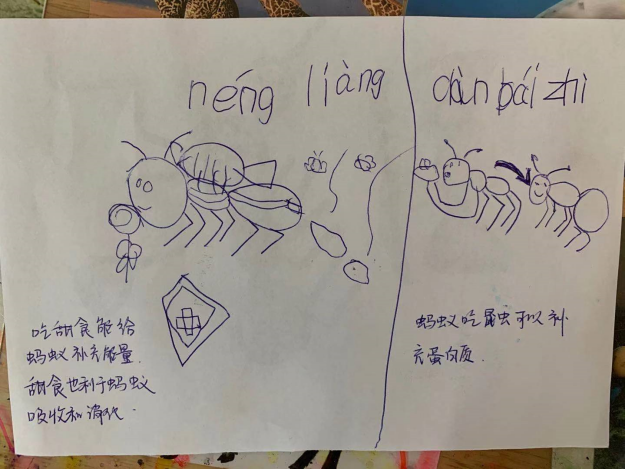 néng liàng
dàn bái zhì
吃甜食能给
蚂蚁补充能量.
甜食也利于蚂蚁
吸收和消化.
蚂蚁吃昆虫可以补
充蛋白质.